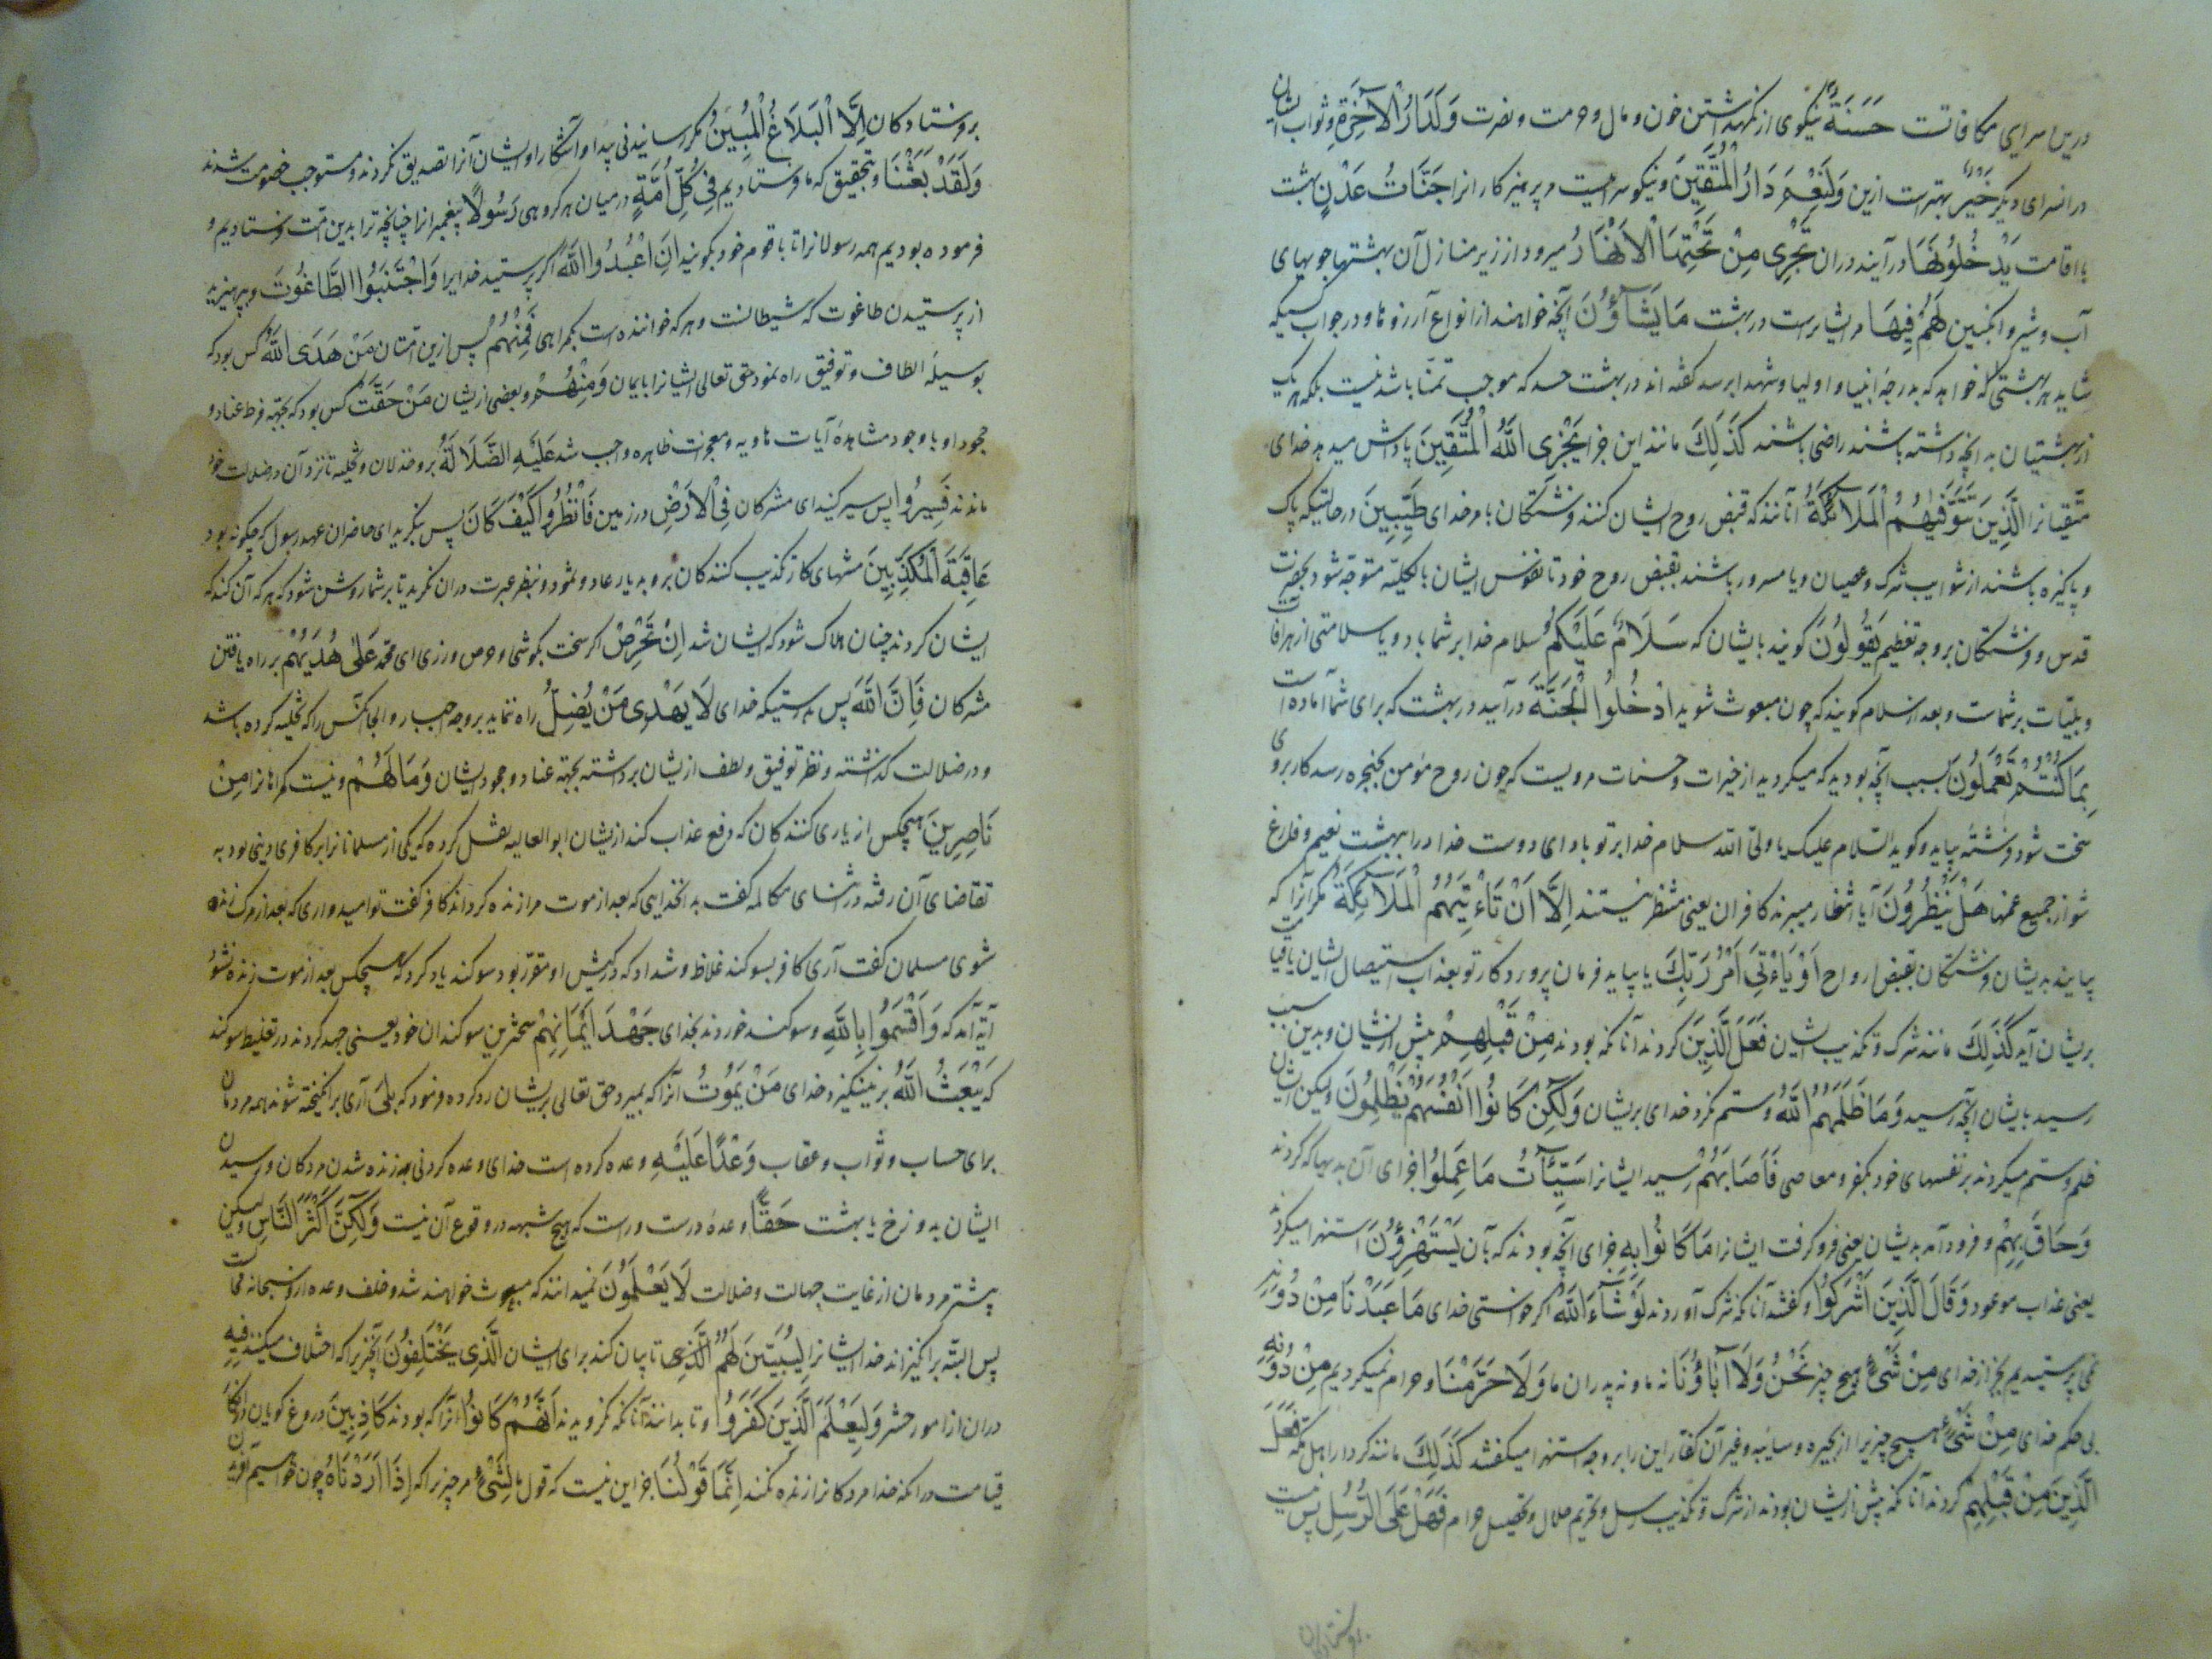 درین سرای مکافاتست حَسَنَةٌ نیکوی از نگهداشتن خون و مال و حرمت و نصرت وَلَدَارُ الْآخِرَةِ و ثواب ایشان
در انسرای دیگر خَیْرٌ بهترست ازین وَلَنِعْمَ دَارُ الْمُتَّقِینَ و نیکو سراییست مر پرهیزکارانرا جَنَّاتُ عَدْنٍ بهشت
با اقامت یَدْخُلُونَهَا درآیند دران تَجْرِی مِنْ تَحْتِهَا الْاَنْهَارُ میرود از زیر منازل آن بهشتها جویهای
آب و شیر و انگبین لَهُمْ فِیهَا مر ایشانراست در بهشت مَا یَشَآؤُنَ آنچه خواهند از انواع آرزوها و در جواب کسیکه
شاید هر بهشتی که خواهد که بدرجهٔ انبیا و اولیا و شهدا برسد گفته اند در بهشت حسد که موجب تمنّا باشد نیست بلکه هر یک
از بهشتیان به آنچه داشته باشند راضی باشند کَذَلِكَ مانند این جزا یَجْزِی اللّٰهُ الْمُتَّقِینَ پاداش میدهد خدای
متقیانرا الَّذِینَ تَتَوَفّٰیهُمُ الْمَلَآئِکَةُ آنانند که قبض روح ایشان کنند فرشتکان بامر خدای طَیِّبِینَ در حالتیکه پاک
و پاکیزه باشند از شوایب شرک و عصیان و یا مسرور باشند بقبض روح خود تا نفوس ایشان بالکلیه متوجه شود بحضرت
قدس و فرشتکان بر وجه تعظیم یَقُولُونَ کویند بایشان که سَلَامٌ عَلَیْکُمْ سلام خدا بر شما باد و یا سلامتی از هر آفات
و بلیّات بر شماست و بعد از سلام کویند که چون مبعوث شوید ادْخُلُوا الْجَنَّةَ درآیید در بهشت که برای شما آماده است
بِمَا کُنْتُمْ تَعْمَلُونَ بسبب آنچه بودید که میکردید از خیرات و حسنات مرویست که چون روح مؤمن بحنجره رسد کار بروی
سخت شود فرشتهٔ بیاید و کوید السّلام علیک یا ولیّ الله سلام خدا بر تو باد ای دوست خدا درا ببهشت نعیم و فارغ
شو از جمیع غمها هَلْ یَنْظُرُونَ آیا انتظار میبرند کافران یعنی منتظر نیستند اِلَّا اَنْ تَاْتِیَهُمُ الْمَلَآئِکَةُ مکر آنرا که
بیایند بدیشان فرشتکان بقبض ارواح اَوْ یَاْتِیَ اَمْرُ رَبِّكَ یا بیاید فرمان پروردکار تو بعذاب استیصال ایشان یا قیامت
بریشان آید کَذَلِكَ مانند شرک و تکذیب ایشان فَعَلَ الَّذِینَ کردند آنانکه بودند مِنْ قَبْلِهِمْ پیش ازیشان و بدین سبب
رسید بایشان آنچه رسید وَمَا ظَلَمَهُمُ اللّٰهُ و ستم نکرد خدای بریشان وَلَکِنْ کَانُوا اَنْفُسَهُمْ یَظْلِمُونَ ولیکن ایشان
ظلم و ستم میکردند بر نفسهای خود بکفر و معاصی فَاَصَابَهُمْ رسید ایشانرا سَیِّئَاتُ مَا عَمِلُوا جزای آن بدیها که کردند
وَحَاقَ بِهِمْ و فرود آمد بدیشان یعنی فرو کرفت ایشانرا مَا کَانُوا بِهِ جزای آنچه بودند که بآن یَسْتَهْزِؤُنَ استهزا میکردند
یعنی عذاب موعود وَقَالَ الَّذِینَ اَشْرَکُوا و گفتند آنانکه شرک آوردند لَوْ شَآءَ اللّٰهُ اکر خواستی خدای مَا عَبَدْنَا مِنْ دُونِهِ
نمی پرستیدیم بجز از خدای مِنْ شَیْءٍ هیچ چیز نَحْنُ وَلَا آبَاؤُنَا نه ما و نه پدران ما وَلَا حَرَّمْنَا و حرام نمیکردیم مِنْ دُونِهِ
بی حکم خدای مِنْ شَیْءٍ هیچ چیزیرا از بحیره و سائبه و غیر آن کفار این را بر وجه استهزا میکفتند کَذَلِكَ مانند کردار اهل مکه فَعَلَ
الَّذِینَ مِنْ قَبْلِهِمْ کردند آنانکه پیش ازیشان بودند از شرک و تکذیب رسل و تحریم حلال و تحلیل حرام فَهَلْ عَلَی الرُّسُلِ پس نیست
بر فرستادکان
بر فرستادکان اِلَّا الْبَلَاغُ الْمُبِینُ مکر رسانیدنی پیدا و آشکارا و ایشان آنرا تصدیق نکردند و مستوجب خصومت شدند
وَلَقَدْ بَعَثْنَا و بتحقیق که ما فرستادیم فِی کُلِّ اُمَّةٍ در میان هر کروهی رَسُولًا پیغمبرانرا چنانچه ترا بدین امّت فرستادیم و
فرموده بودیم همه رسولانرا تا با قوم خود بکویند اَنِ اعْبُدُوا اللّٰهَ اکر پرستید خدایرا وَاجْتَنِبُوا الطَّاغُوتَ و بپرهیزید
از پرستیدن طاغوت که شیطانست و هر که خواننده است بکمراهی فَمِنْهُمْ پس ازین امّتان مَنْ هَدَی اللّٰهُ کس بود که
بوسیلهٔ الطاف و توفیق راه نمود حق تعالی ایشانرا بایمان وَمِنْهُمْ و بعضی ازیشان مَنْ حَقَّتْ کس بود که بجهة فرط عناد و
جحود او با وجود مشاهدهٔ آیات هاویه و معجزات ظاهره واجب شد عَلَیْهِ الضَّلَالَةُ برو خذلان و تخلیه تا نزد آن در ضلالت خود
ماندند فَسِیرُوا پس سیر کنید ای مشرکان فِی الْاَرْضِ در زمین فَانْظُرُوا کَیْفَ کَانَ پس بنگرید ای حاضران عهد رسول که چکونه بود
عَاقِبَةُ الْمُکَذِّبِینَ منتهای کار تکذیب کنندکان بروید بدیار عاد و ثمود و بنظر عبرت دران نکرید تا بر شما روشن شود که هر که آن کند که
ایشان کردند چنان هلاک شود که ایشان شد اِنْ تَحْرِصْ اکر سخت بکوشی و حرص ورزی ای محمد عَلَی هُدٰیهُمْ بر راه یافتن
مشرکان فَاِنَّ اللّٰهَ پس بدرستیکه خدای لَا یَهْدِی مَنْ یُضِلُّ راه ننماید بر وجه اجبار و الجا آنکس را که تخلیه کرده باشد
و در ضلالت گذاشته و نظر توفیق و لطف ازیشان برداشته بجهة عناد و جحود ایشان وَمَا لَهُمْ و نیست کمراهانرا مِنْ
نَاصِرِینَ هیچکس از یاری کنندکان که دفع عذاب کند ازیشان ابو العالیه نقل کرده که یکی از مسلمانانرا بر کافری دینی بود به
تقاضای آن رفته در اثنای مکالمه کفت بدان خدایی که بعد از موت مرا زنده کرداند کافر کفت تو امیدواری که بعد از مرک زنده
شوی مسلمان کفت آری کافر بسوکند غلاظ و شداد که در کیش او مقرّر بود سوکند یاد کرد که هیچکس بعد از موت زنده نشود
آیه آمد که وَاَقْسَمُوا بِاللّٰهِ و سوکند خوردند بخدای جَهْدَ اَیْمَانِهِمْ سخترین سوکندان خود یعنی جهد کردند در تغلیظ سوکند
که یَبْعَثُ اللّٰهُ برنینکیزد خدای مَنْ یَمُوتُ آنرا که بمیرد حق تعالی بریشان رد کرده فرمود که بَلَی آری برانکیخته شوند همه مردمان
برای حساب و ثواب و عقاب وَعْدًا عَلَیْهِ وعده کرده است خدای وعده کردنی بزنده شدن مردکان و رسیدن
ایشان بدوزخ یا بهشت حَقًّا وعدهٔ درست و راست که هیچ شبهه در وقوع آن نیست وَلَکِنَّ اَکْثَرَ النَّاسِ ولیکن
پیشتر مردمان از غایت جهالت و ضلالت لَا یَعْلَمُونَ نمیدانند که مبعوث خواهند شد و خلف وعده ازو سبحانه محالست
پس البته برانکیزاند خدا ایشانرا لِیُبَیِّنَ لَهُمُ الَّذِی تا بیان کند برای ایشان الَّذِی یَخْتَلِفُونَ آنچیزیرا که اختلاف میکنند فِیهِ
دران از امور حشر وَلِیَعْلَمَ الَّذِینَ کَفَرُوا و تا بدانند آنانکه نکرویدند اَنَّهُمْ کَانُوا آنرا که بودند کَاذِبِینَ دروغ کویان
قیامت در آنکه خدا مردکانرا زنده نکند اِنَّمَا قَوْلُنَا جز این نیست که قول ما لِشَیْءٍ مر چیزیرا که اِذَا اَرَدْنَاهُ چون خواسیم